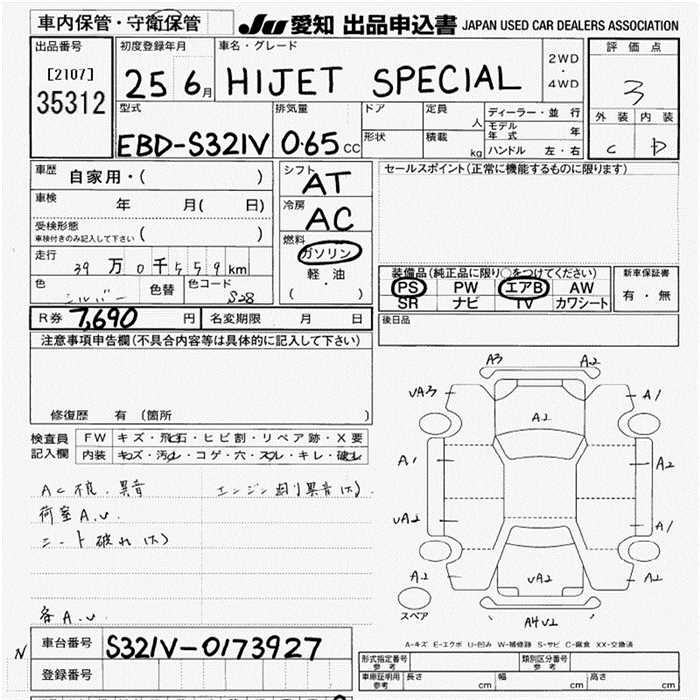 車内保管・守衛保管 JU 愛知 出品申込書 JAPAN USED CAR DEALERS ASSOCIATION
出品番号 初度登録年月 車名・グレード 2WD ・ 4WD 評価点
[2107] 35312 25 6月 HIJET SPECIAL 3
型式 排気量 ドア 定員 人 ディーラー・並行 外装 内装
EBD-S321V 0.65 CC 形状 積載 kg モデル年式 年 C D
ハンドル 左・右
車歴 自家用・( ) シフト AT セールスポイント(正常に機能するものに限ります)
車検 年 月( 日) 冷房 AC
受検形態 車検付きのみ記入して下さい ( )
燃料 ガソリン
走行 39万0千559km 軽・油
装備品(純正品に限り○をつけてください) 新車保証書
色 シルバー 色替 色コード S28 ( ) PS PW エアB AW 有・無
SR ナビ TV カワシート
R券 7,690円 名変期限 月 日 後日品
注意事項申告欄(不具合内容等は具体的に記入して下さい)
修復歴 有 (箇所 )
検査員記入欄 FW キズ・飛石・ヒビ割・リペア跡・X要
内装 キズ・汚レ・コゲ・穴・スレ・キレ・破レ
AC不良.異音 エンジン回り異音(大).
荷室A.U.
シート破れ(大)
各A.U
A3 A2
UA3 A1
A2
A1 A2
UA2 A1
A2 UA2 A2
スペア A4U2
A-キズ E-エクボ U-凹み W-補修跡 S-サビ C-腐食 XX-交換済
N 車台番号 S321V-0173927
登録番号
形式指定番号 参考 類別区分番号 参考
車庫証明用 参考 長さ cm 幅 cm 高さ cm